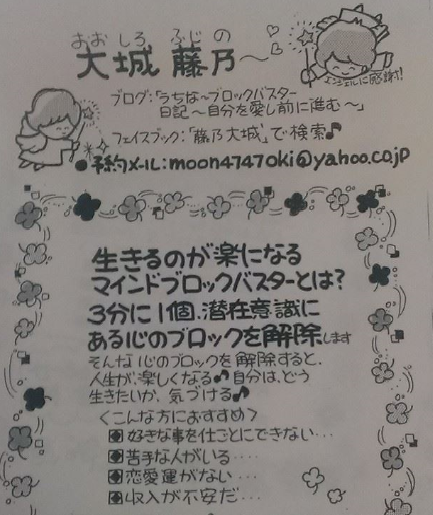 おおしろ ふじの
大城 藤乃～
エンジェルに感謝!
ブログ:「うちな～ブロックバスター
日記～自分を愛し前に進む～」
フェイスブック:「藤乃大城」で検索♪
●予約メール:moon4747oki@yahoo.co.jp
生きるのが楽になる
マインドブロックバスターとは?
3分に1個、潜在意識に
ある心のブロックを解除します
そんな心のブロックを解除すると、
人生が、楽しくなる♪自分は、どう
生きたいか、気づける♪
<こんな方におすすめ>
好きな事を仕ごとにできない…
苦手な人がいる…
恋愛運がない…
収入が不安だ…